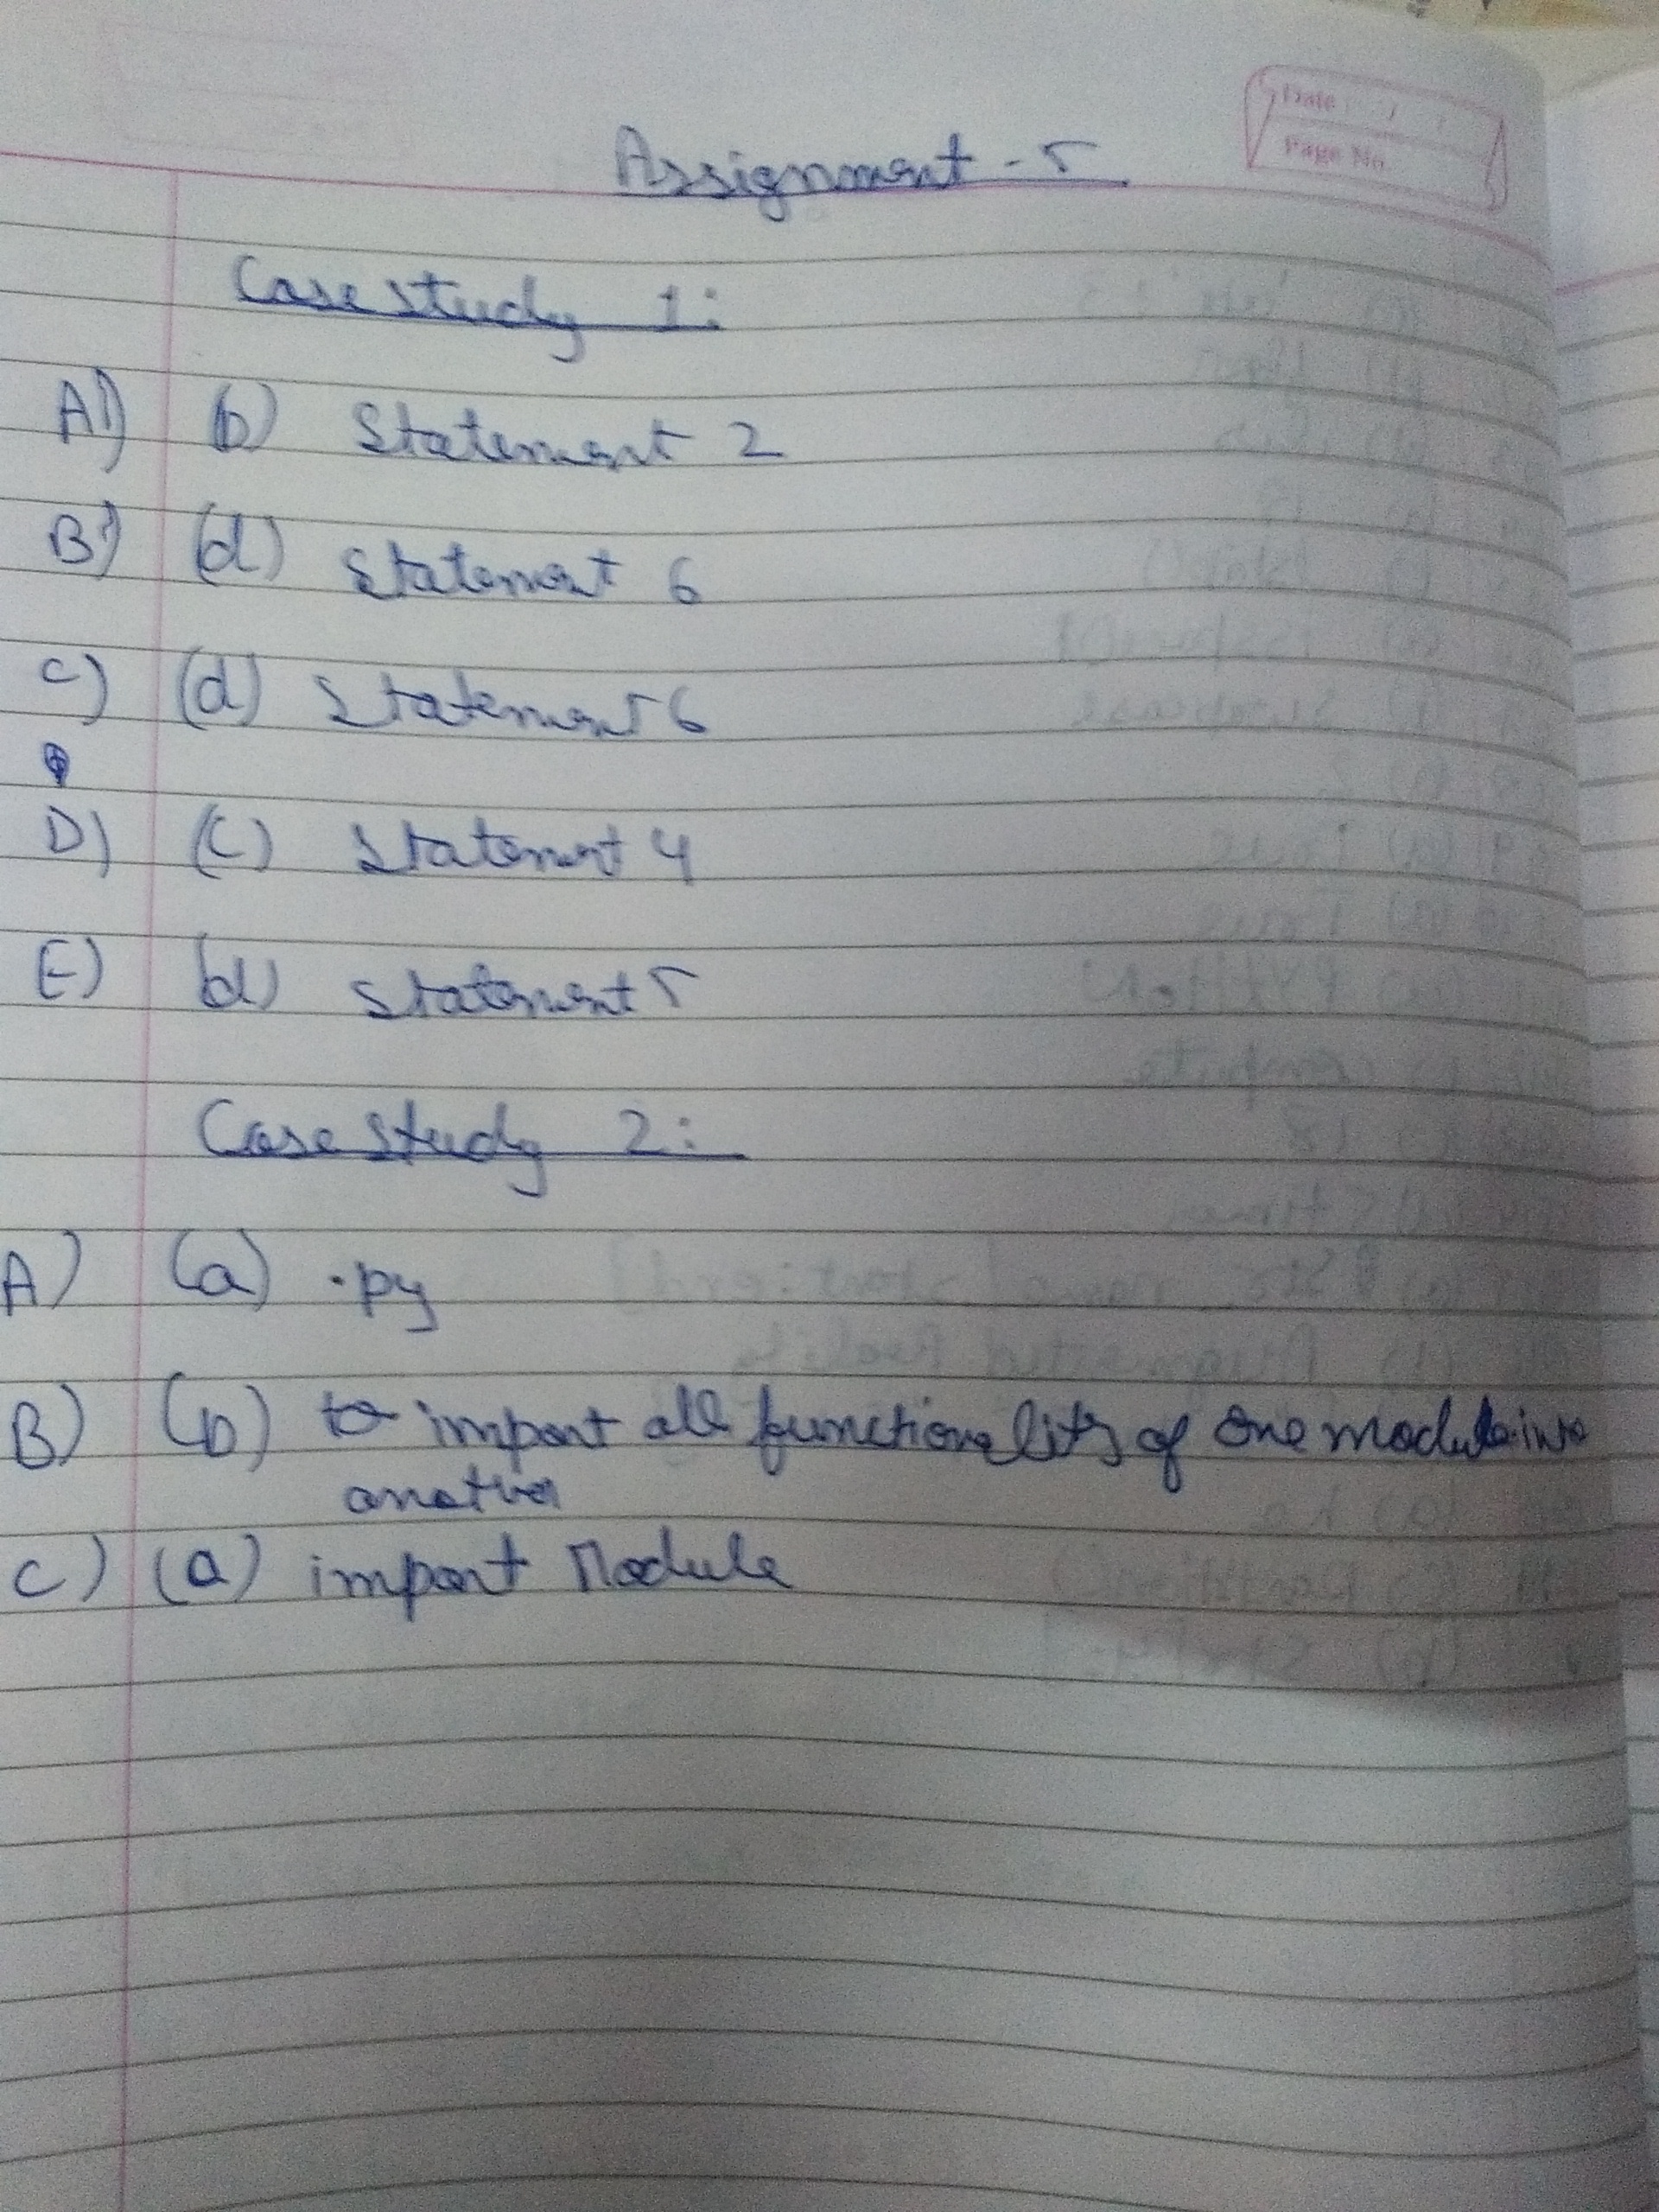 Date
Page No
Assignment - 5
Case Study 1:
A) (b) Statement 2
B) (d) Statement 6
C) (d) Statement 6
D) (C) Statement 4
E) (d) Statement 5
Case Study 2:
A) (a) .py
B) (b) to import all functionality of one module into
another
C) (a) import Module